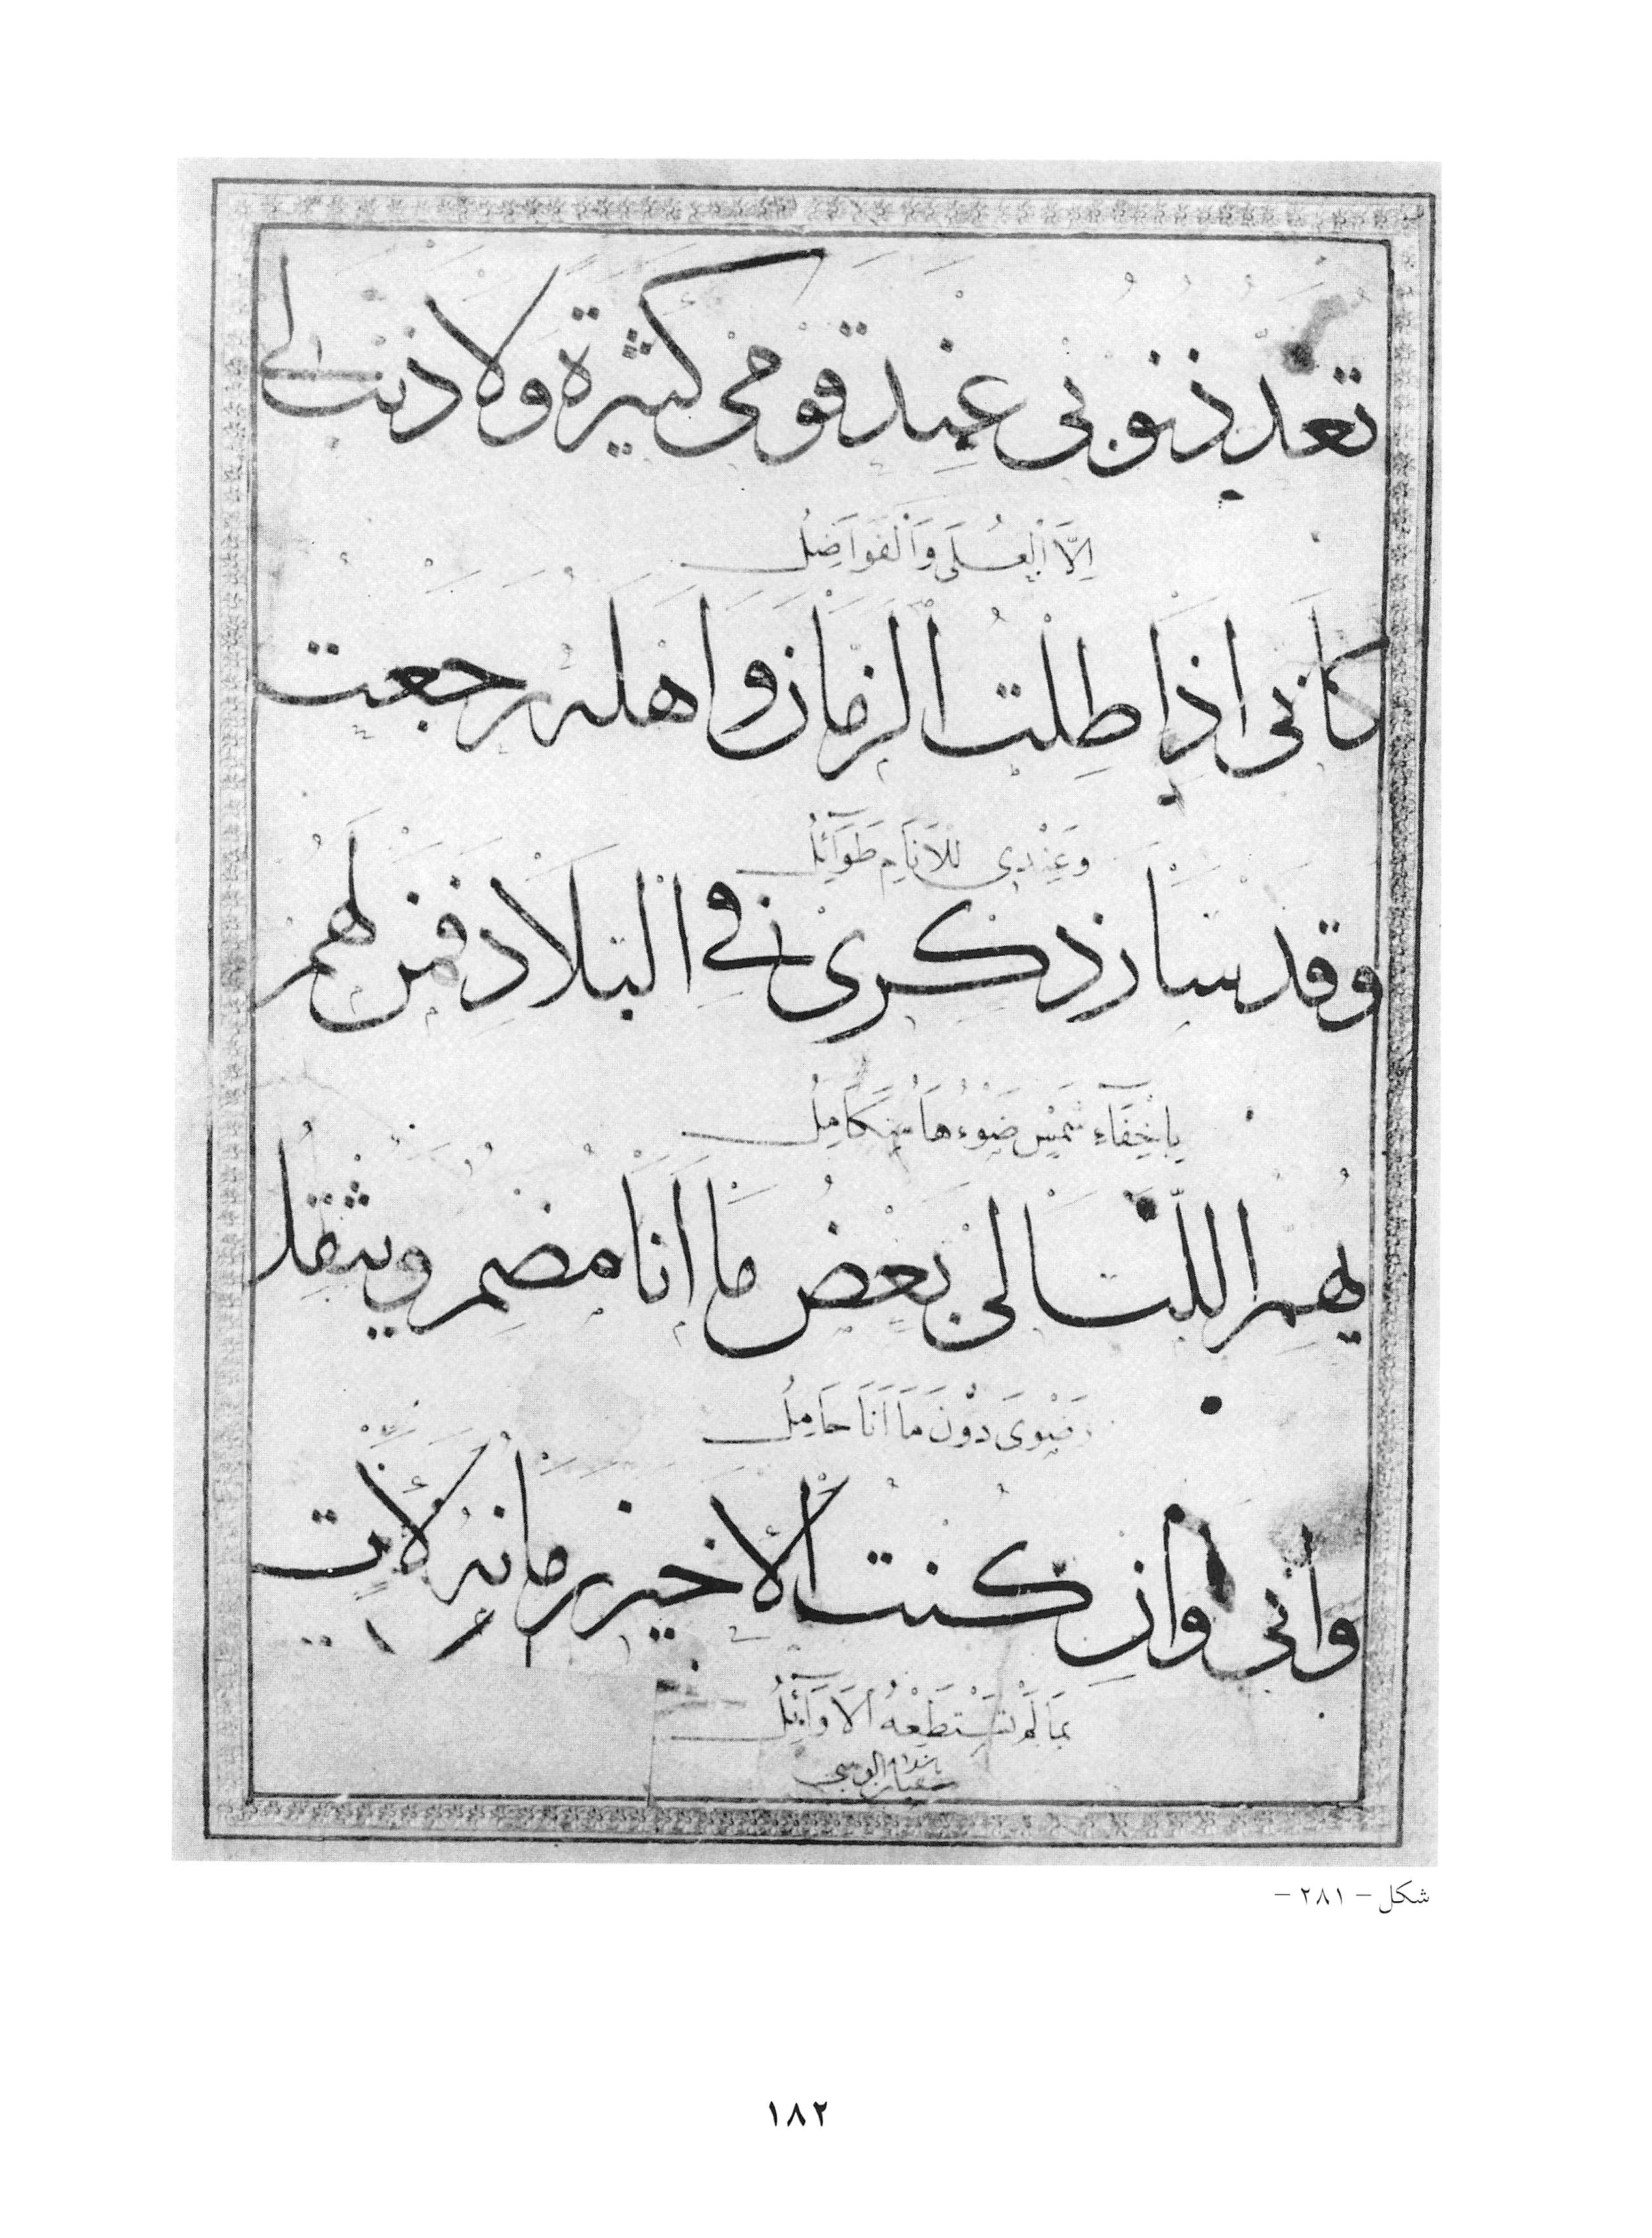 تعد ذنوبى عند قومى كثيرة ولا ذنب لى
اِلَّا اَلْعُلَى وَاَلْفَوَاضِلُ
كأنى اذا طلت الزمان واهله رجعت
وَعِنْدِى لِلْاَنَامِ طَوَآئِلُ
وقد سار ذكرى فى البلاد فمن لهم
بِاِخْفَآءِ شَمْسٍ ضَوْءُهَا مُتَكَامِلُ
يهم الليالى بعض ما أنا مضمر ويثقل
رَضْوَى دُوْنَ مَا اَنَا حَامِلُ
وأنى وان كنت الأخير زمانه لأت
بِمَا لَمْ تَسْتَطِعْهُ اَلْاَوَآئِلُ
شكل - ٢٨١ -
١٨٢